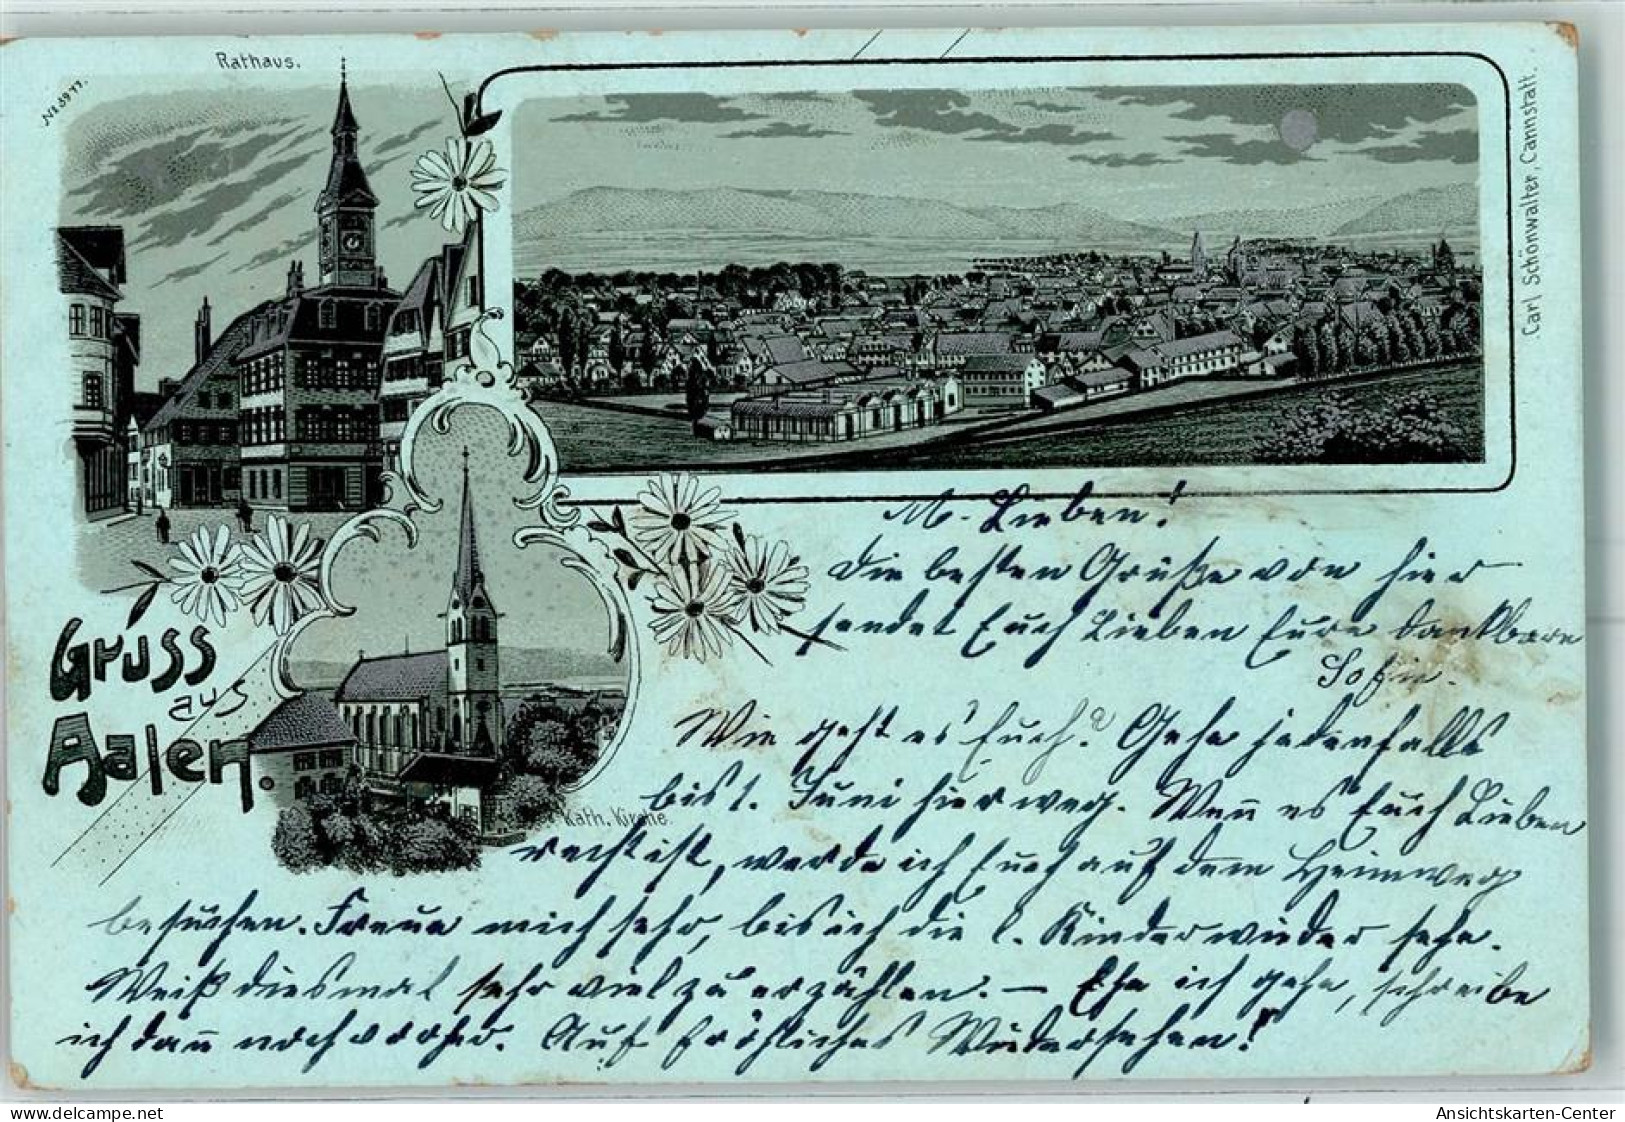 Rathaus.
No 3977.
Carl Schönwalter, Cannstatt.
Gruss
aus
Aalen.
Kath. Kirche.
M. Lieben!
Die besten Grüße von hier
sendet Euch Lieben Eure dankbare
Sofie.
Wie geht es Euch? Gehe jedenfalls
bis 1. Juni hier weg. Wenn es Euch Lieben
recht ist, werde ich Euch auf dem Heimweg
besuchen. Freue mich sehr, bis ich die l. Kinder wieder sehe.
Weiß diesmal sehr viel zu erzählen. — Ehe ich gehe, schreibe
ich dann noch vorher. Auf fröhliches Wiedersehen!
Ansichtskarten-Center
delcampe.net